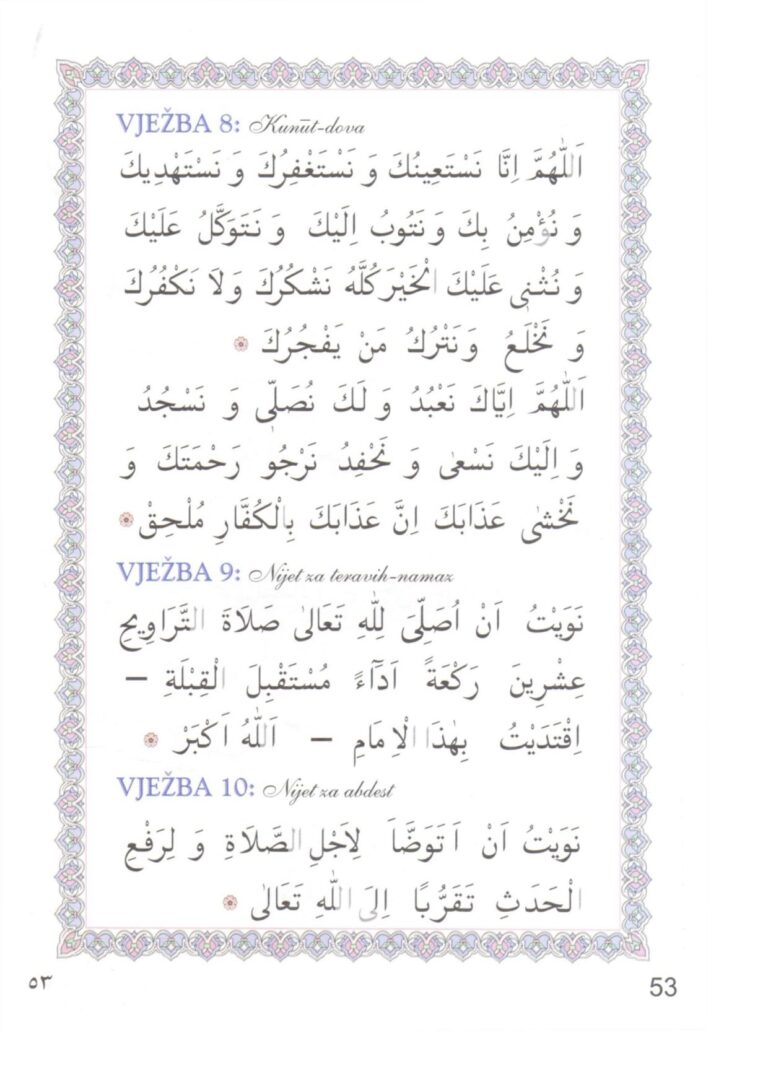 VJEŽBA 8: Kunūt-dova
اَللّٰهُمَّ اِنَّا نَسْتَعِينُكَ وَ نَسْتَغْفِرُكَ وَ نَسْتَهْدِيكَ
وَ نُؤْمِنُ بِكَ وَ نَتُوبُ اِلَيْكَ وَ نَتَوَكَّلُ عَلَيْكَ
وَ نُثْنِى عَلَيْكَ الْخَيْرَ كُلَّهُ نَشْكُرُكَ وَ لَا نَكْفُرُكَ
وَ نَخْلَعُ وَ نَتْرُكُ مَنْ يَفْجُرُكَ
اَللّٰهُمَّ اِيَّاكَ نَعْبُدُ وَ لَكَ نُصَلِّى وَ نَسْجُدُ
وَ اِلَيْكَ نَسْعٰى وَ نَحْفِدُ نَرْجُو رَحْمَتَكَ وَ
نَخْشٰى عَذَابَكَ اِنَّ عَذَابَكَ بِالْكُفَّارِ مُلْحِقْ
VJEŽBA 9: Nijet za teravih-namaz
نَوَيْتُ اَنْ اُصَلِّىَ لِلّٰهِ تَعَالٰى صَلَاةَ التَّرَاوِيحِ
عِشْرِينَ رَكْعَةً اَدَآءً مُسْتَقْبِلَ الْقِبْلَةِ –
اِقْتَدَيْتُ بِهٰذَا الْاِمَامِ – اَللّٰهُ اَكْبَرْ
VJEŽBA 10: Nijet za abdest
نَوَيْتُ اَنْ اَتَوَضَّاَ لِاَجْلِ الصَّلَاةِ وَ لِرَفْعِ
الْحَدَثِ تَقَرُّبًا اِلَى اللّٰهِ تَعَالٰى
٥٣ 53